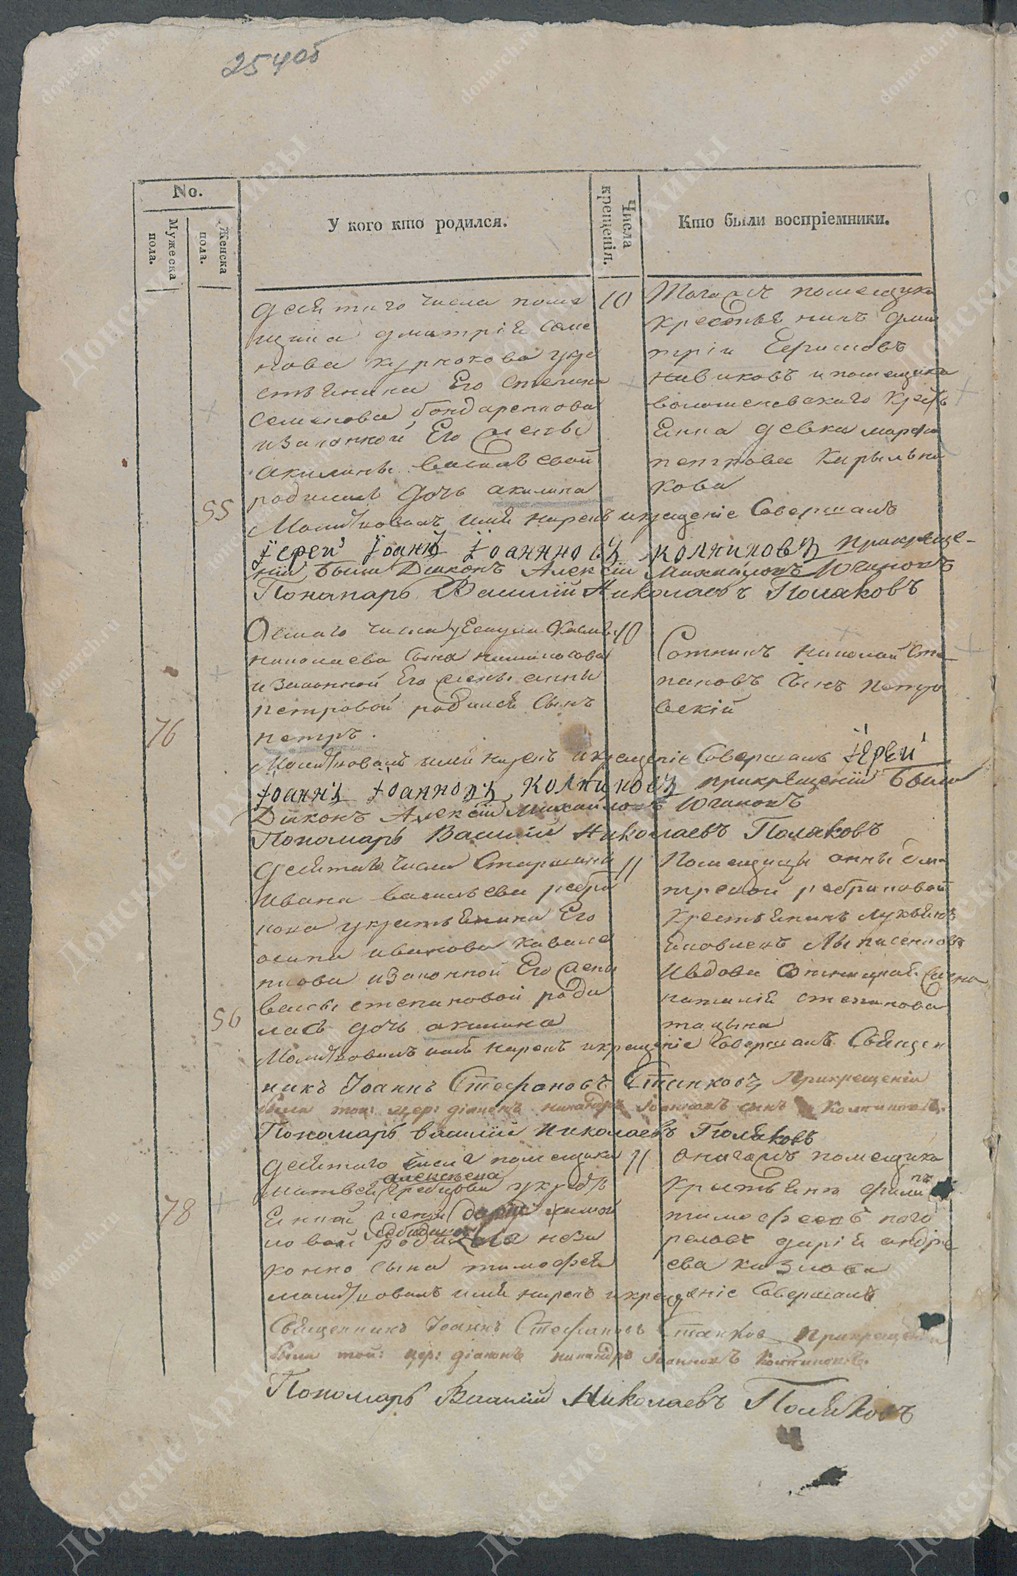 254об
No.
Мужеска пола.
Женска пола.
У кого кто родился.
Числа крещенія.
Кто были воспріемники.
десятаго числа поме
щика дмитрія семе
нова курнокова укре
стьянина Его степана
семенова бондаренкова
изаконной Его жены
акилины васильевой
родилась дочь акилина
10
Тогожъ помещика
крестьянинъ дми
трій Ефимовъ
новиковъ и помещика
волошеновскаго крестья
Енка девка марфа
петрова кирильни
кова
55
Молитвовалъ имя нарекъ икрещеніе Совершалъ
Іерей Іоаннъ Іоанновъ колпиковъ прикреще-
ніи были Діаконъ Алексій Михайловъ Юганокъ
Пономарь Василій Николаевъ Поляковъ
Осмаго числа уЕсаула
николаева сына
изаконной Его жены анны
петровой родился сынъ
петръ.
10
Сотникъ николай Сте
пановъ сынъ петро
вскій
76
Молитвовалъ имя нарекъ икрещеніе Совершалъ Іерей
Іоаннъ Іоанновъ Колпиковъ прикрещеніи были
Діаконъ Алексій Михайловъ Юганокъ
Пономарь Василій Николаевъ Поляковъ
десятаго числа Старшины
Ивана васильева ребри
кова укрестьянина Его
осипа иванова ковале
нкова изаконной Его жены
васы степановой роди
лась дочь акилина
11
Помещицы анны дми
тревой ребриковой
крестьянинъ лукьянъ
яковлевъ
Ивдова
наталія степанова
56
Молитвовалъ имя нарекъ икрещеніе Совершалъ Священ
никъ Іоаннъ Стефановъ Станковъ Прикрещеніи
были той: цер: діаконъ никандръ Іоанновъ сынъ Колпиковъ.
Пономарь василій николаевъ Поляковъ
десятаго числа помещика
матвея алексеева
Енной жены дарьи
новой родился неза
конно сына тимофей
11
Оногожъ помещика
Крестьянинъ филипъ
тимофеевъ
дарія андре
ева козлова
78
молитвовалъ имя нарекъ икрещеніе Совершалъ
Священникъ Іоаннъ Стефановъ Станковъ Прикрещеніи
были той: цер: діаконъ никандръ Іоанновъ Колпиковъ.
Пономарь Василій Николаевъ Поляковъ